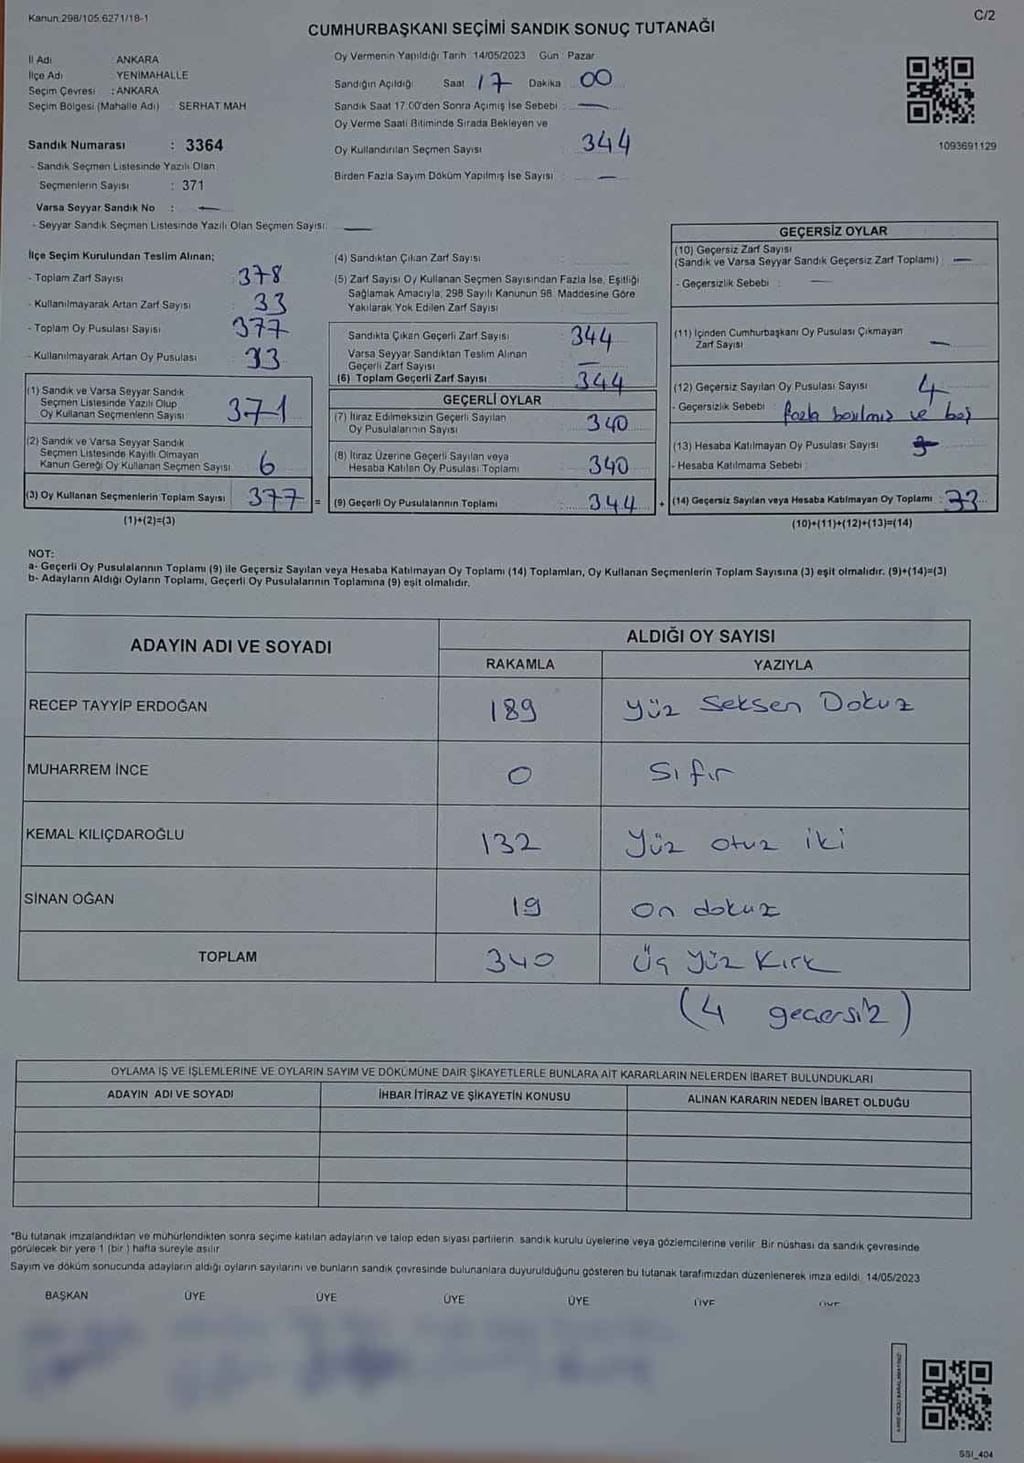 Kanun 298/105 6271/18-1
C/2
CUMHURBAŞKANI SEÇİMİ SANDIK SONUÇ TUTANAĞI
İl Adı ANKARA
İlçe Adı YENİMAHALLE
Seçim Çevresi : ANKARA
Seçim Bölgesi (Mahalle Adı) SERHAT MAH
Sandık Numarası : 3364
- Sandık Seçmen Listesinde Yazılı Olan
Seçmenlerin Sayısı : 371
Varsa Seyyar Sandık No : —
- Seyyar Sandık Seçmen Listesinde Yazılı Olan Seçmen Sayısı: —
Oy Vermenin Yapıldığı Tarih 14/05/2023 Gün Pazar
Sandığın Açıldığı Saat 17 Dakika 00
Sandık Saat 17.00'den Sonra Açımış İse Sebebi : —
Oy Verme Saati Bitiminde Sırada Bekleyen ve
Oy Kullandırılan Seçmen Sayısı 344
Birden Fazla Sayım Döküm Yapılmış İse Sayısı —
1093691129
İlçe Seçim Kurulundan Teslim Alınan;
- Toplam Zarf Sayısı 378
- Kullanılmayarak Artan Zarf Sayısı 33
- Toplam Oy Pusulası Sayısı 377
- Kullanılmayarak Artan Oy Pusulası 33
(1) Sandık ve Varsa Seyyar Sandık
Seçmen Listesinde Yazılı Olup
Oy Kullanan Seçmenlerin Sayısı 371
(2) Sandık ve Varsa Seyyar Sandık
Seçmen Listesinde Kayıtlı Olmayan
Kanun Gereği Oy Kullanan Seçmen Sayısı 6
(3) Oy Kullanan Seçmenlerin Toplam Sayısı 377 =
(1)+(2)=(3)
(4) Sandıktan Çıkan Zarf Sayısı
(5) Zarf Sayısı Oy Kullanan Seçmen Sayısından Fazla İse, Eşitliği
Sağlamak Amacıyla, 298 Sayılı Kanunun 98. Maddesine Göre
Yakılarak Yok Edilen Zarf Sayısı
Sandıkta Çıkan Geçerli Zarf Sayısı 344
Varsa Seyyar Sandıktan Teslim Alınan
Geçerli Zarf Sayısı —
(6) Toplam Geçerli Zarf Sayısı 344
GEÇERLİ OYLAR
(7) İtiraz Edilmeksizin Geçerli Sayılan
Oy Pusulalarının Sayısı 340
(8) İtiraz Üzerine Geçerli Sayılan veya
Hesaba Katılan Oy Pusulası Toplamı 340
(9) Geçerli Oy Pusulalarının Toplamı 344 +
GEÇERSİZ OYLAR
(10) Geçersiz Zarf Sayısı
(Sandık ve Varsa Seyyar Sandık Geçersiz Zarf Toplamı) —
- Geçersizlik Sebebi : —
(11) İçinden Cumhurbaşkanı Oy Pusulası Çıkmayan
Zarf Sayısı —
(12) Geçersiz Sayılan Oy Pusulası Sayısı 4
- Geçersizlik Sebebi fazla basılmış ve boş
(13) Hesaba Katılmayan Oy Pusulası Sayısı
- Hesaba Katılmama Sebebi
(14) Geçersiz Sayılan veya Hesaba Katılmayan Oy Toplamı : 33
(10)+(11)+(12)+(13)=(14)
NOT:
a- Geçerli Oy Pusulalarının Toplamı (9) ile Geçersiz Sayılan veya Hesaba Katılmayan Oy Toplamı (14) Toplamları, Oy Kullanan Seçmenlerin Toplam Sayısına (3) eşit olmalıdır. (9)+(14)=(3)
b- Adayların Aldığı Oyların Toplamı, Geçerli Oy Pusulalarının Toplamına (9) eşit olmalıdır.
ADAYIN ADI VE SOYADI
ALDIĞI OY SAYISI
RAKAMLA YAZIYLA
RECEP TAYYİP ERDOĞAN 189 Yüz Seksen Dokuz
MUHARREM İNCE 0 Sıfır
KEMAL KILIÇDAROĞLU 132 Yüz otuz iki
SİNAN OĞAN 19 on dokuz
TOPLAM 340 Üç Yüz Kırk
(4 geçersiz)
OYLAMA İŞ VE İŞLEMLERİNE VE OYLARIN SAYIM VE DÖKÜMÜNE DAİR ŞİKAYETLERLE BUNLARA AİT KARARLARIN NELERDEN İBARET BULUNDUKLARI
ADAYIN ADI VE SOYADI İHBAR İTİRAZ VE ŞİKAYETİN KONUSU ALINAN KARARIN NEDEN İBARET OLDUĞU
*Bu tutanak imzalandıktan ve mühürlendikten sonra seçime katılan adayların ve talep eden siyasi partilerin, sandık kurulu üyelerine veya gözlemcilerine verilir. Bir nüshası da sandık çevresinde
görülecek bir yere 1 (bir ) hafta süreyle asılır
Sayım ve döküm sonucunda adayların aldığı oyların sayılarını ve bunların sandık çevresinde bulunanlara duyurulduğunu gösteren bu tutanak tarafımızdan düzenlenerek imza edildi. 14/05/2023
BAŞKAN ÜYE ÜYE ÜYE ÜYE ÜYE ÜYE
SSI_404